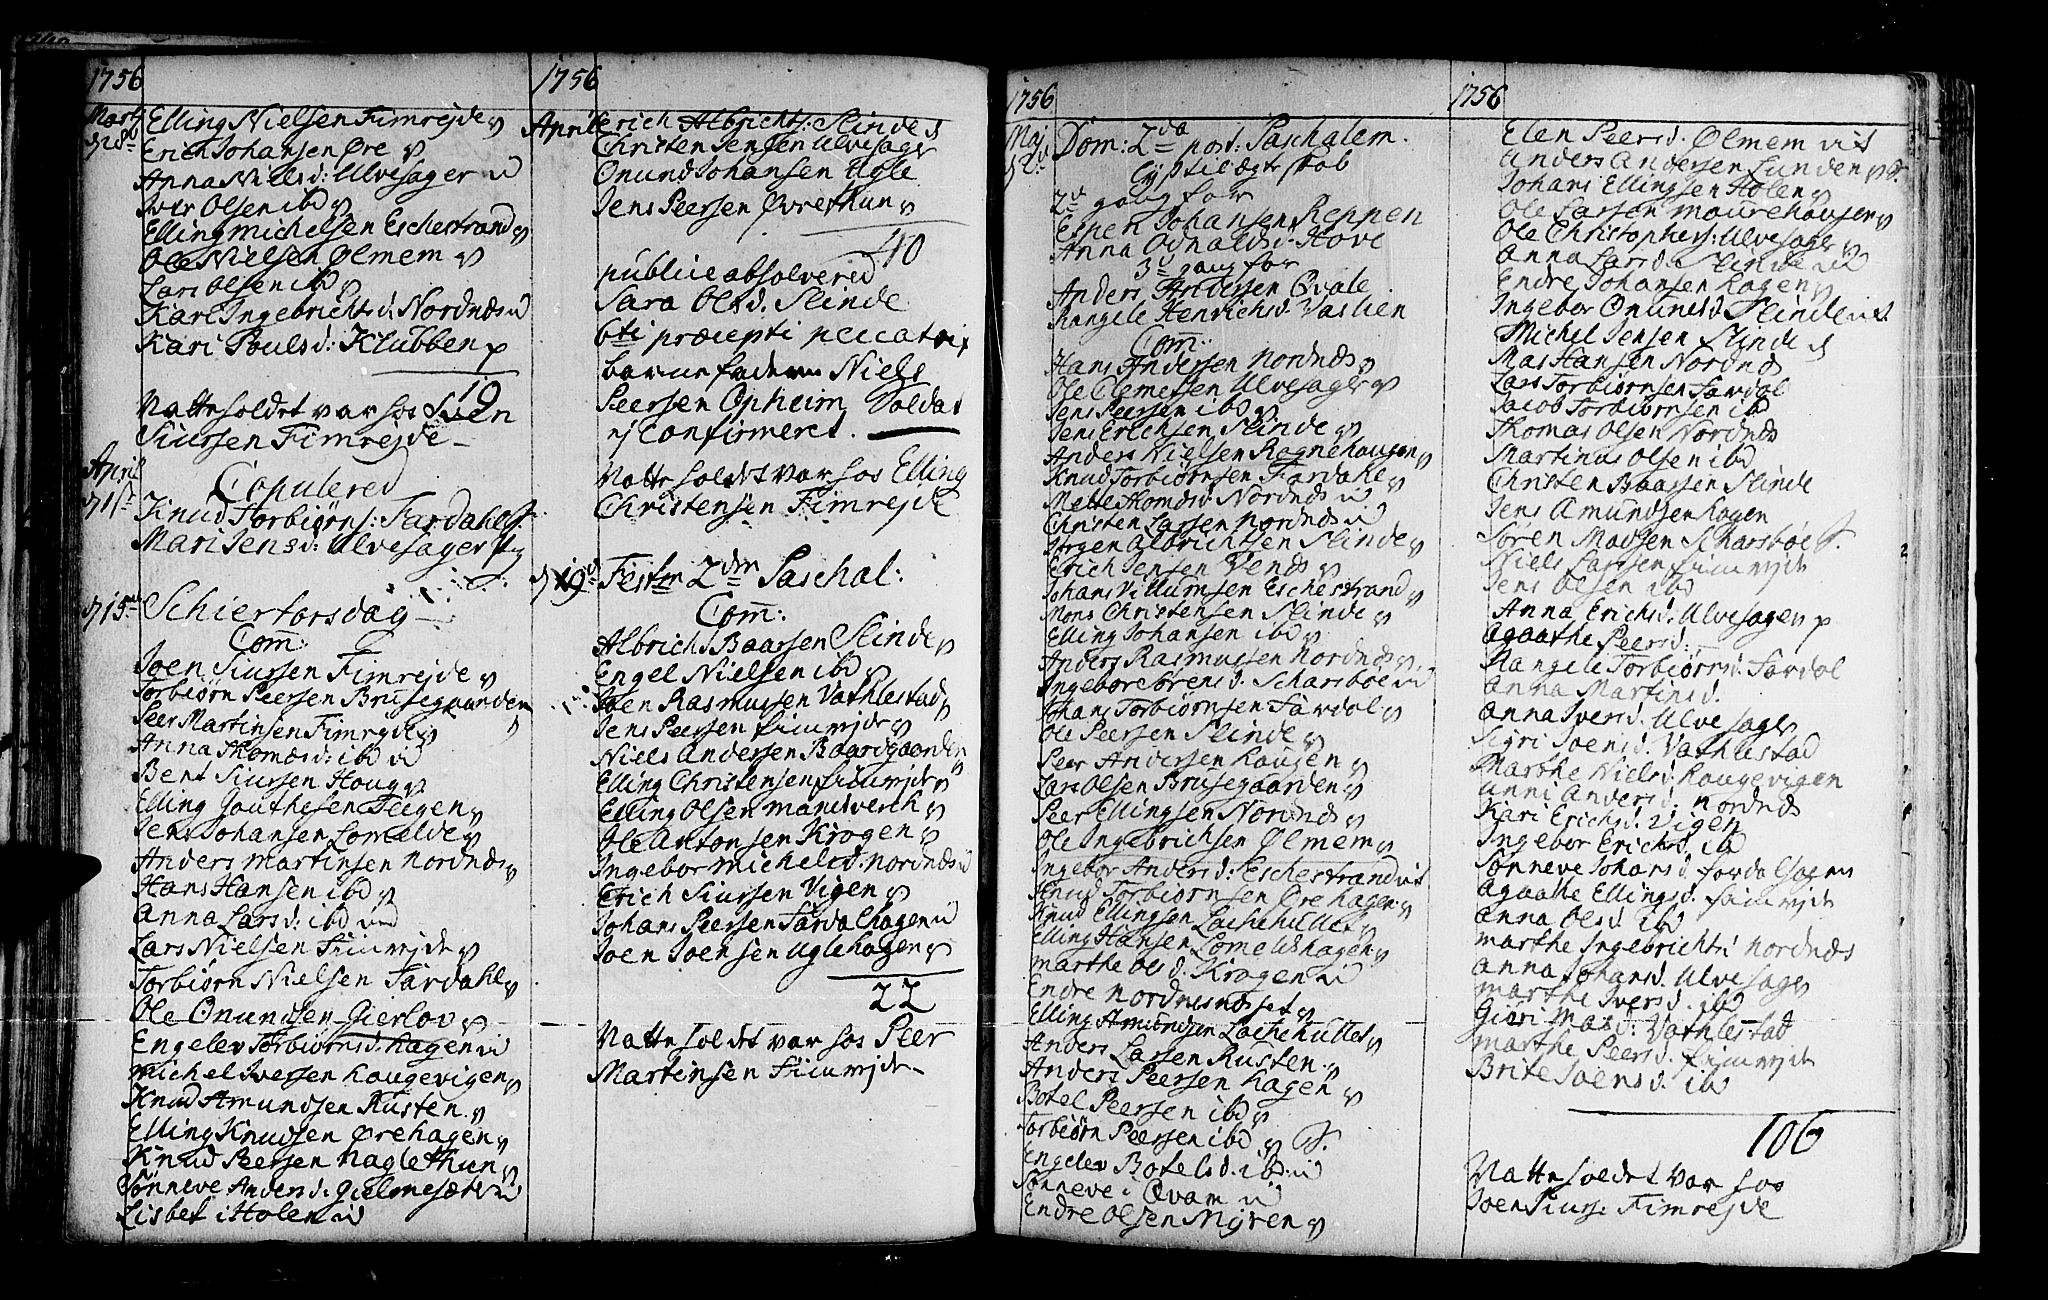 1756
Martj
d 28de
Elling Nielsen Fimrejde
Erich Johansen Øre
Anna Nielsd: Ulvesager
Iver Olsen ibd
Elling Michelsen Eschestrand
Ole Nielsen Ølmem
Lars Olsen ibd
Kari Ingebrichtsd. Nordnæs
Kari Poulsd: Klubben
19
Natteholdet var hos
Siursen Fimrejde
April
d 1ste
Copulered
Knud Torbiørns: Fardahl
Mari Jensd: Ulvesager
d 15de
Schiertorsdag
Com:
Joen Siursen Fimrejde
Torbiørn Peersen Brusegaarden
Peer Martinsen Fimrejde
Anna Thomæsd: ibd
Bent Siursen Houg
Elling Gouthesen Teigen
Jens Johansen Lomelde
Anders Martinsen Nordnæs
Hans Hansen ibd
Anna Larsd: ibd
Lars Nielsen Fimrejde
Torbiørn Nielsen Fardahl
Ole Onundsen Gierlov
Engelev Torbiørnsd. Hagen
Michel Iversen Haugevigen
Knud Amundsen Rusten
Elling Knudsen Ørehagen
Knud Peersen Naglethun
Sønneve Andersd. Gielmesæter
Lisbet i Holen
1756
April
Erich Albrichts: Slinde
Christen Jensen Ulvesager
Onund Johansen Ugle
Jens Peersen Øvrethun
40
publice absolvered
Sara Olsd. Slinde
6ti præcepti peccatrix
barnefaderen Niels
Peersen Opheim Soldat
confirmeret.
Natteholdet var hos Elling
Christensen Fimrejde
d 19d
Festm 2dm Paschal:
Com:
Albricht Baarsen Slinde
Engel Nielsen ibd
Joen Rasmussen Vathlestad
Jens Peersen Fimrejde
Niels Andersen Baardgaarden
Elling Christensen Fimrejde
Elling Olsen Mundverch
Ole Antonsen Krogen
Ingebor Michelsd. Nordnæs
Erich Siursen Vigen
Johans Peersen Fardalhagen
Joen Joensen Uglehagen
22
Natteholdet var hos Peer
Martinsen Fimrejde
1756
Maj
d 2d
Dom: 2da post: Paschalem.
Lyst til ægteskab
2den gang for
Espen Johansen Reppen
Anna Odnaldsd. Hove
3d gang for
Anders Andersen Qvale
Rangele Henrichsd. Vaslien
Com:
Hans Andersen Nordnæs
Ole Clemetsen Ulvesager
Jens Peersen ibd
Jens Erichsen Slinde
Anders Nielsen Ragnehaugen
Knud Torbiørnsen Fardahl
Mette Thomæsd. Nordnæs
Christen Larsen Nordnæs
Jørgen Albrichtsen Slinde
Erich Jensen Vends
Johans Villumsen Eschestrand
Mons Christensen Slinde
Elling Johansen ibd
Anders Rasmussen Nordnæs
Ingebor Sørensd. Scharsboe
Johans Torbiørnsen Fardal
Ole Peersen Slinde
Peer Andersen Haugen
Lars Olsen Brusegaarden
Peer Ellingsen Nordnæs
Ole Ingebrichsen Ølmem
Ingebor Andersd: Eschestrand
Knud Torbiørnsen Ørehagen
Knud Ellingsen Lachehullet
Elling Hansen Lomeldshagen
Marthe Olsd. Krogen
Endre Nordnesnosset
Elling Amundsen Lachehullet
Anders Larsen Rusten
Anders Peersen Hagen
Botel Peersen ibd
Torbiørn Peersen ibd
Engelev Botelsd. ibd
Sønneve i Qvam
Endre Olsen Myren
1756
Elen Peersd. Ølmem
Anders Andersen Lunden
Johans Ellingsen Holen
Ole Larsen Maurehaugen
Ole Christophers: Ulvesager
Anna Larsd. Slinde
Endre Johansen Hagen
Ingebor Onunsd Slinde
Michel Jensen Slinde
Mas Hansen Nordnæs
Lars Torbiørnsen Fardal
Jacob Torbiørnsen ibd
Thomas Olsen Nordnæs
Martinus Olsen ibd
Christen Baarsen Slinde
Jens Amundsen Hagen
Søren Madsen Scharsboe
Niels Larsen Fimrejde
Jens Olsen ibd
Anna Erichsd. Ulvesager
Agaathe Peersd: —
Rangele Torbiørnsd. Fardal
Anna Martinsd.
Anna Iversd. Ulvesager
Sigri Joensd. Vathlestad
Marthe Nielsd. Haugevigen
Anni Andersd: Nordnæs
Kari Erichsd. Vigen
Ingebor Erichsd. ibd
Sønneve Johansd. Fardalhagen
Agaathe Ellingsd. Fimrejde
Anna Olsd. ibd
Marthe Ingebrichtsd Nordnæs
Anna Johansd. Ulvesager
Marthe Iversd. ibd
Giøri Masd: Vathlestad
Marthe Peersd. Fimrejde
Brite Joensd. ibd
106
Natteholdet var hos
Joen Siurs: Fimrejde